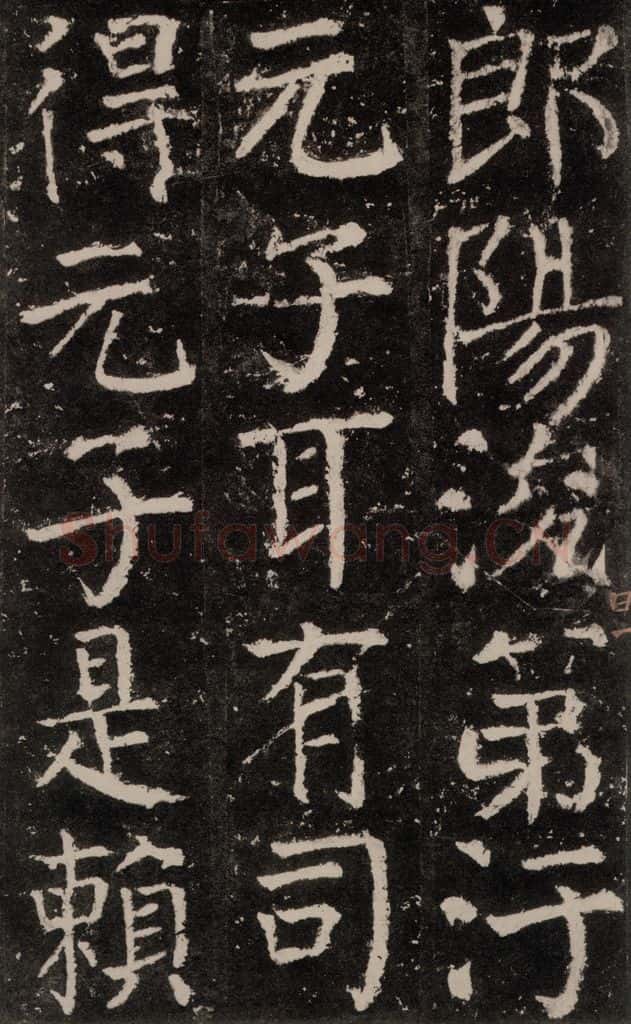 郎陽浚第汙
曰一
元子耳有司
得元子是賴
Shufawang.CN